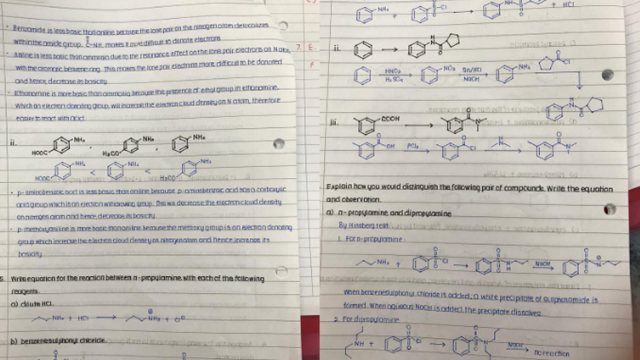 • Benzamide is less basic than aniline because the lone pair on the nitrogen atom delocalizes
within the amide group. C-NH₂ makes it more difficult to donate electrons.
• Aniline is less basic than ammonia due to the resonance effect on the lone pair electrons on N atom,
with the aromatic benzene ring. This makes the lone pair electrons more difficult to be donated
and hence, decrease its basicity
• Ethanamine is more basic than ammonia because the presence of ethyl group in ethanamine,
which an electron donating group, will increase the electron cloud density on N atom, therefore
easier to react with acid.
ii.
HOOC NH₂ , H₃CO NH₂ , NH₂
HOOC NH₂ < NH₂ < H₃CO NH₂
• p-aminobenzoic acid is less basic than aniline because p-aminobenzoic acid has a carboxylic
acid group which is an electron withdrawing group. This will decrease the electron cloud density
on nitrogen atom and hence, decrease its basicity.
• p-methoxyaniline is more basic than aniline because the methoxy group is an electron donating
group which increase the electron cloud density on nitrogen atom and hence, increase its
basicity
5. Write equation for the reaction between n-propylamine with each of the following
reagents.
a) dilute HCl.
NH₂ + HCl → NH₃ + Cl
b) benzenesulphonyl chloride
NH₂ + Cl + HCl
ii.
HNO₃ H₂SO₄ NO₂ Sn/HCl NaOH NH₂ Cl
iii. COOH → N
OH PCl₅ Cl N
Explain how you would distinguish the following pair of compounds. Write the equation
and observation.
a) n-propylamine and dipropylamine
By Hinsberg test
1. For n-propylamine
NH₂ + Cl → NaOH
When benzenesulphonyl chloride is added, a white precipitate of sulphonamide is
formed. When aqueous NaOH is added, the precipitate dissolves.
2. For dipropylamine
NH + Cl → NaOH no reaction